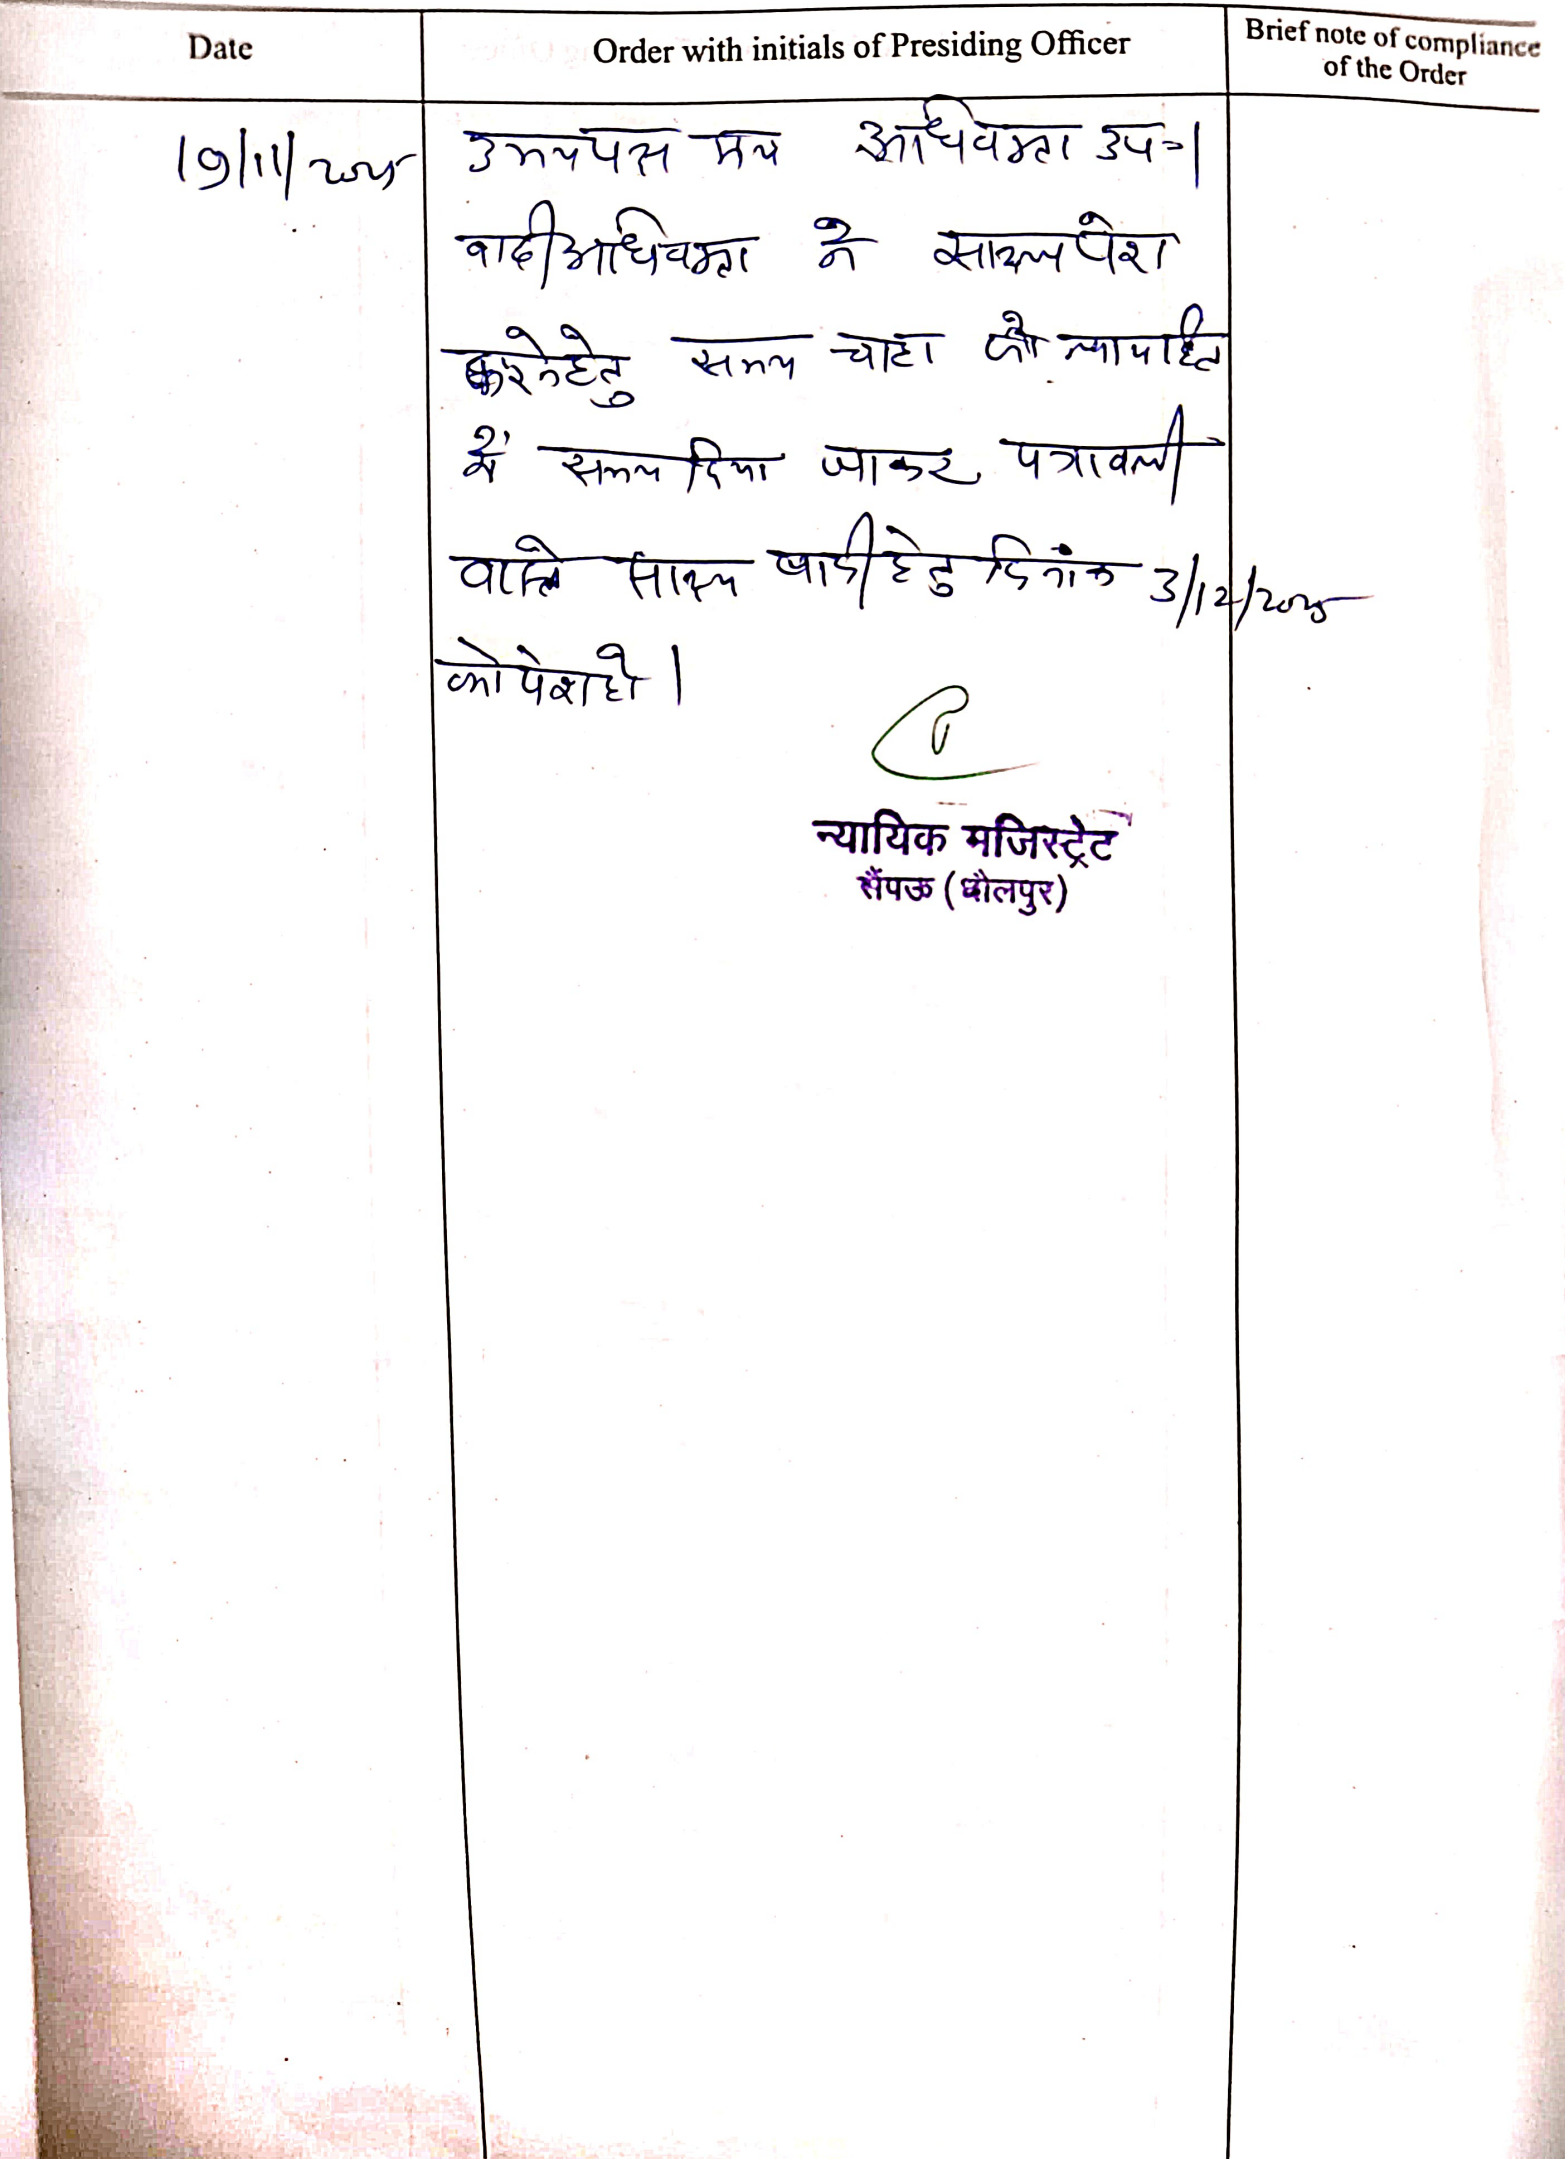 Date
Order with initials of Presiding Officer
Brief note of compliance
of the Order
19/11/2025
उभयपक्ष मय अधिवक्ता उप॰।
वादी अधिवक्ता ने साक्ष्य पेश
करने हेतु समय चाहा जो न्यायहित
में समय दिया जाकर पत्रावली
वास्ते साक्ष्य वादी हेतु दिनांक 3/12/2025
को पेश हो।
न्यायिक मजिस्ट्रेट
सैंपऊ (धौलपुर)